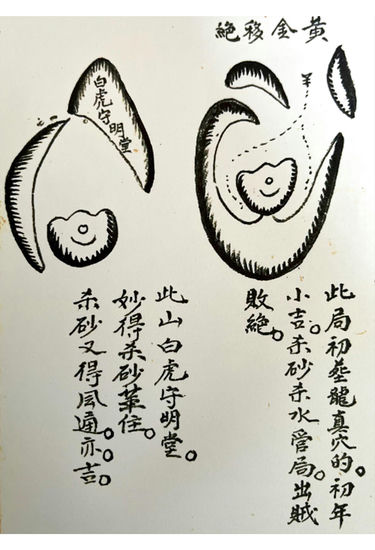 黃金移絶
羊
此局初塟龍真穴的。初年
小吉。杀砂杀水管局。出賊
敗絶。
白虎守明堂
此山白虎守明堂。
妙得杀砂華住。
杀砂又得凨通亦吉。